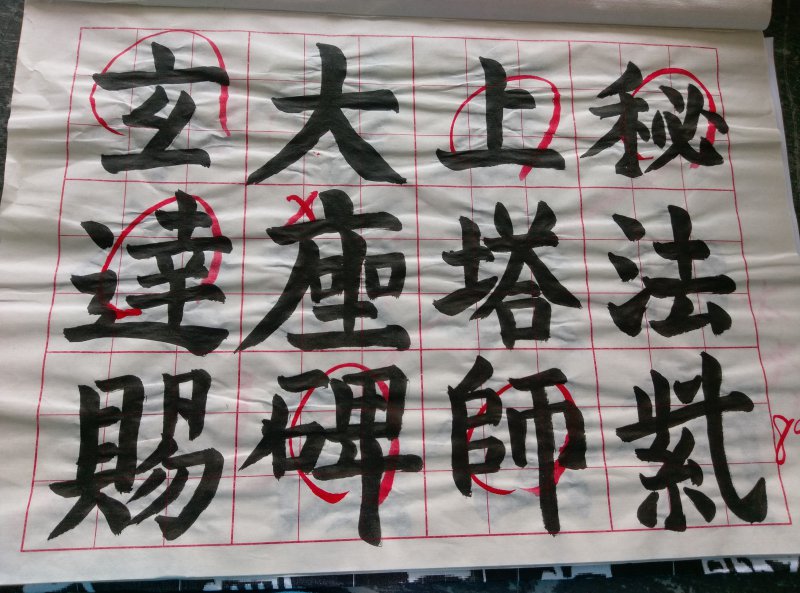 玄大上秘
達座塔法
賜碑師紫